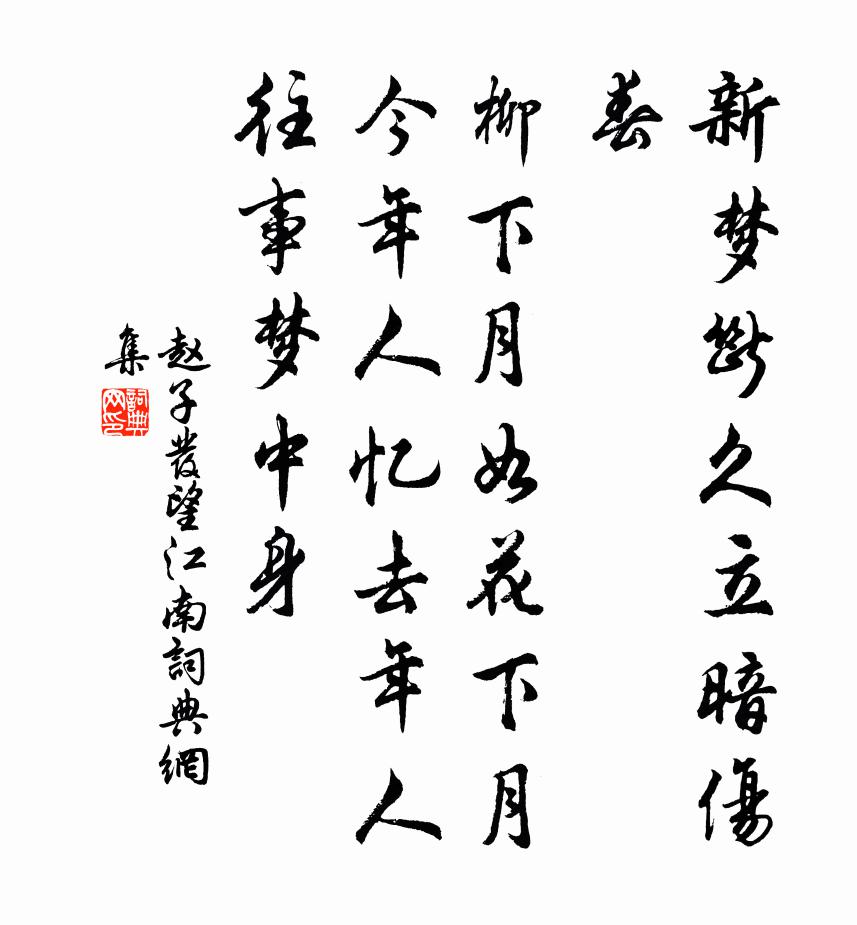 新梦断久立暗傷
春
柳下月如花下月
今年人忆去年人
往事梦中身
赵子發望江南詞典網
集
詞典
网印